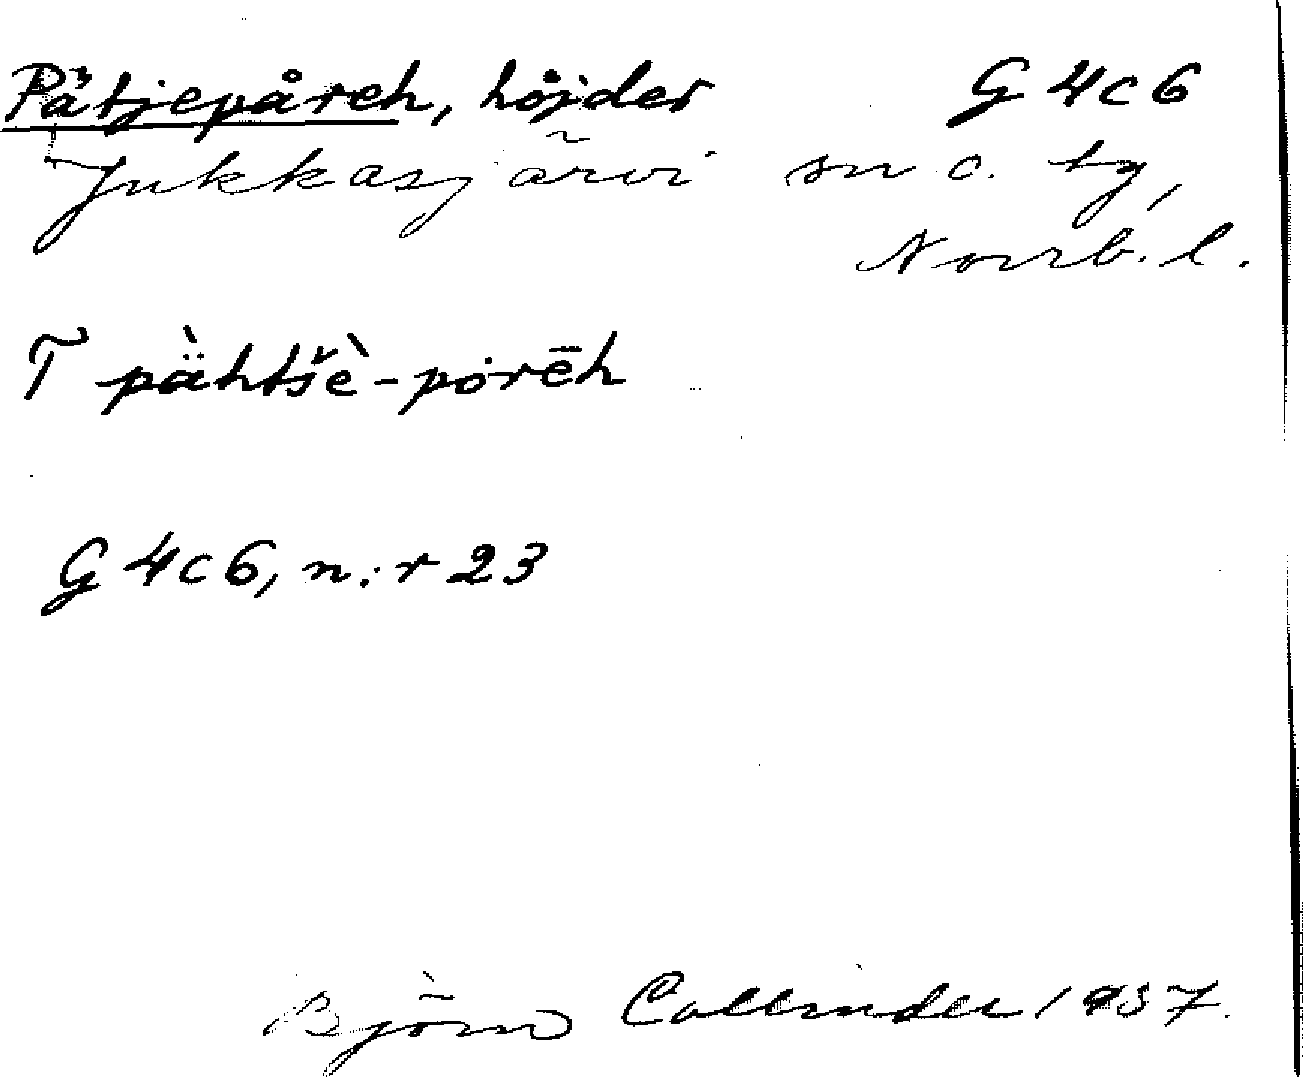 Pätjepåreh, höjder G 4c6
Jukkasjärvi sn o. tg,
Norrb. l.
T pä̀htšè-pȯrēh
G 4c6, n:r 23
Björn Collinder 1937.